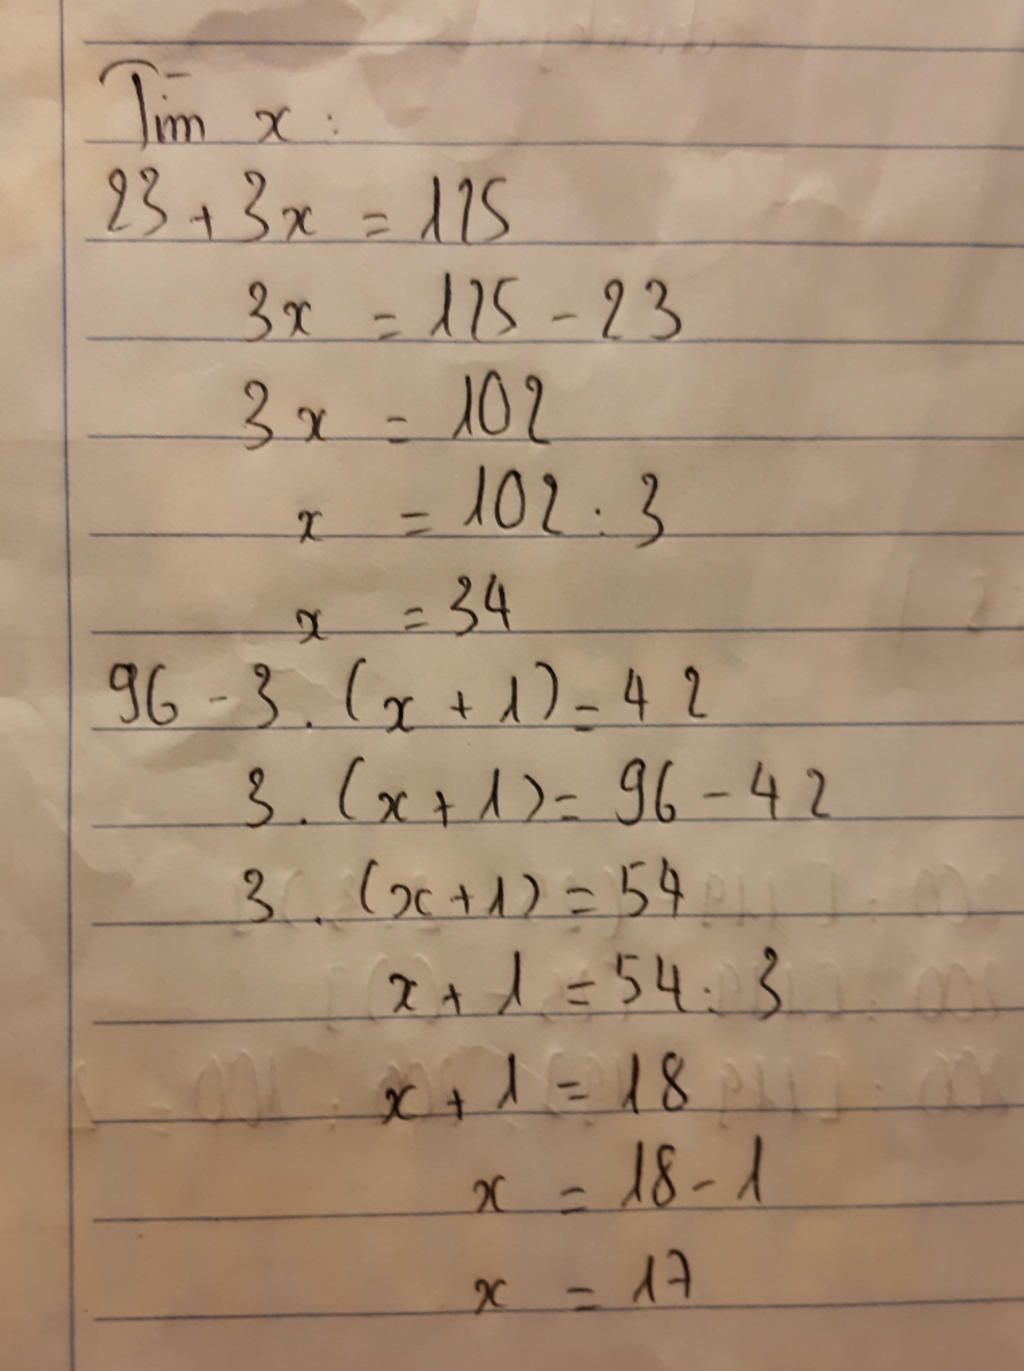 Tìm x :
23 + 3x = 125
3x = 125 - 23
3x = 102
x = 102 : 3
x = 34
96 - 3 . (x + 1) = 42
3 . (x + 1) = 96 - 42
3 . (x + 1) = 54
x + 1 = 54 : 3
x + 1 = 18
x = 18 - 1
x = 17